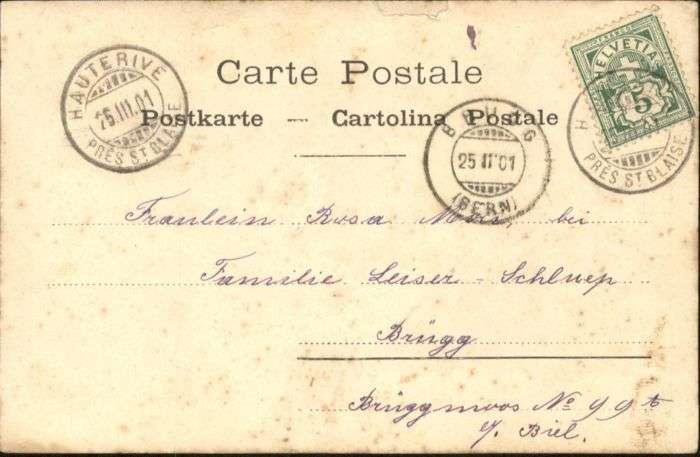 Carte Postale
Postkarte — Cartolina Postale
HAUTERIVE
25.III.01
PRÈS ST BLAISE
BRÜGG
25 II 01
(BERN)
HELVETIA
FRANCO
5
H
PRÈS ST BLAISE
Fräulein Rosa bei
Familie Leiser-Schluep
Brügg
Brüggmoos No 99
b/ Biel.